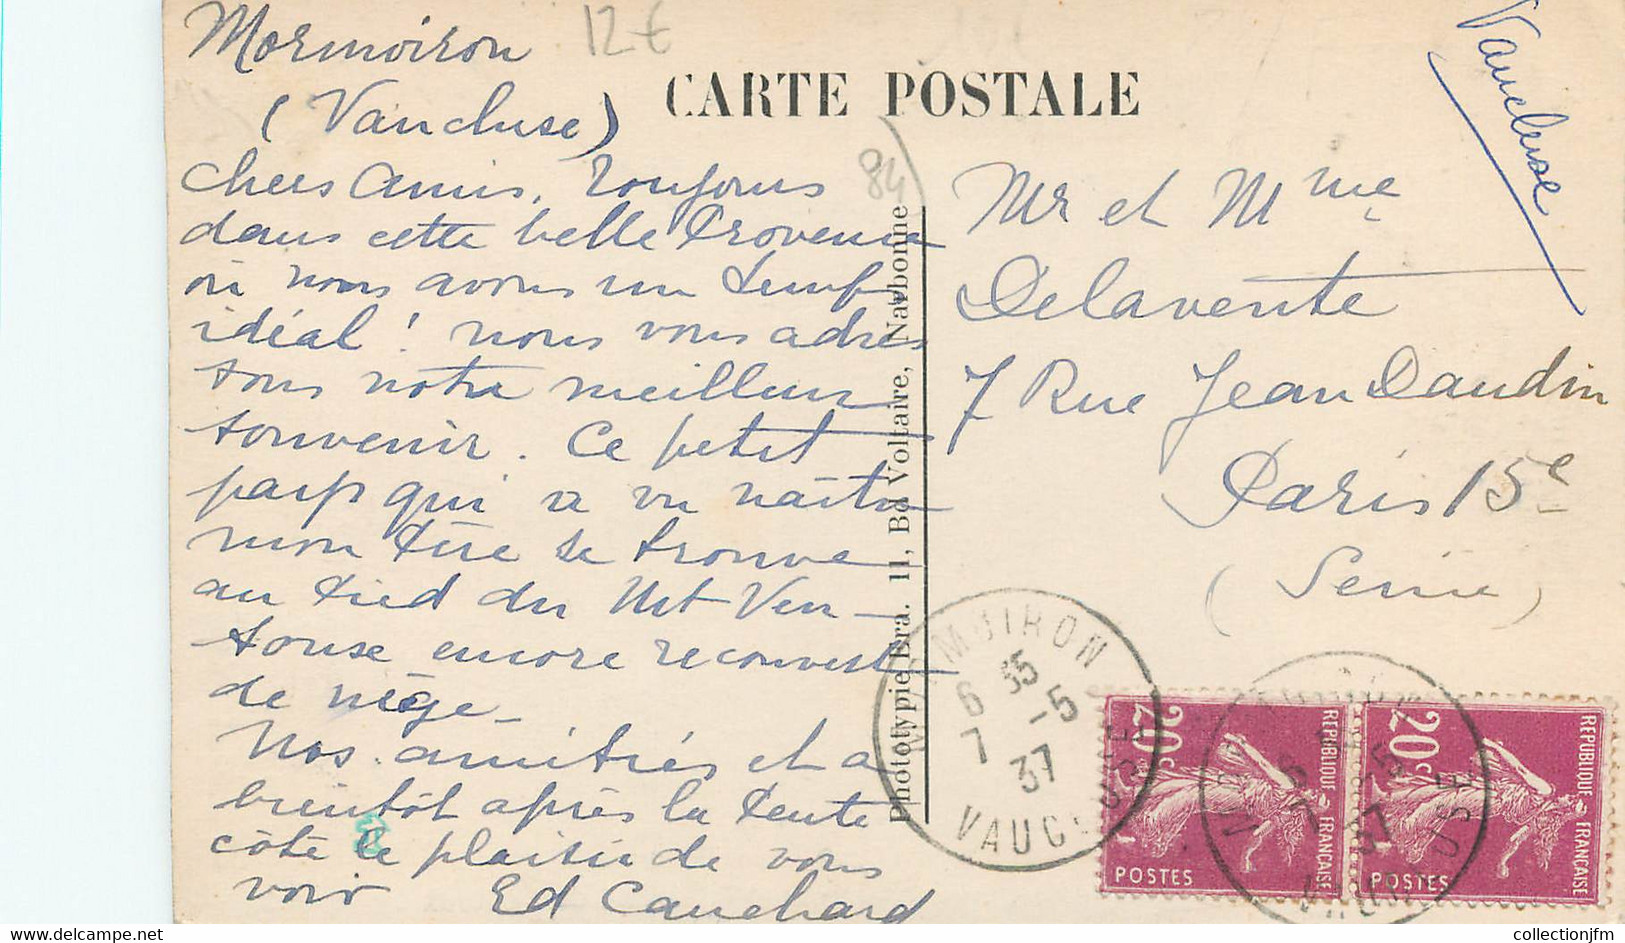 Mormoiron
12€
(Vaucluse)
CARTE POSTALE
Vaucluse
84
Chers Amis, toujours
dans cette belle Provence
où nous avons un temps
idéal ! nous vous adres
sons notre meilleur
souvenir. Ce petit
pays qui a vu naître
mon Père se trouve
au Pied du Mt Ven-
touse encore recouvert
de neige -
Nos amitiés et a
bientôt après la Pente
côte le plaisir de vous
voir Ed Cauchard
Phototypie Bra. 11, Bd Voltaire, Narbonne
Mr et Mme
Delavente
7 Rue Jean Daudin
Paris 15e
(Seine)
MORMOIRON
6 35
7 -5
37
VAUCLUSE
20c
REPUBLIQUE FRANÇAISE
POSTES
20c
REPUBLIQUE FRANÇAISE
POSTES
collectionjfm